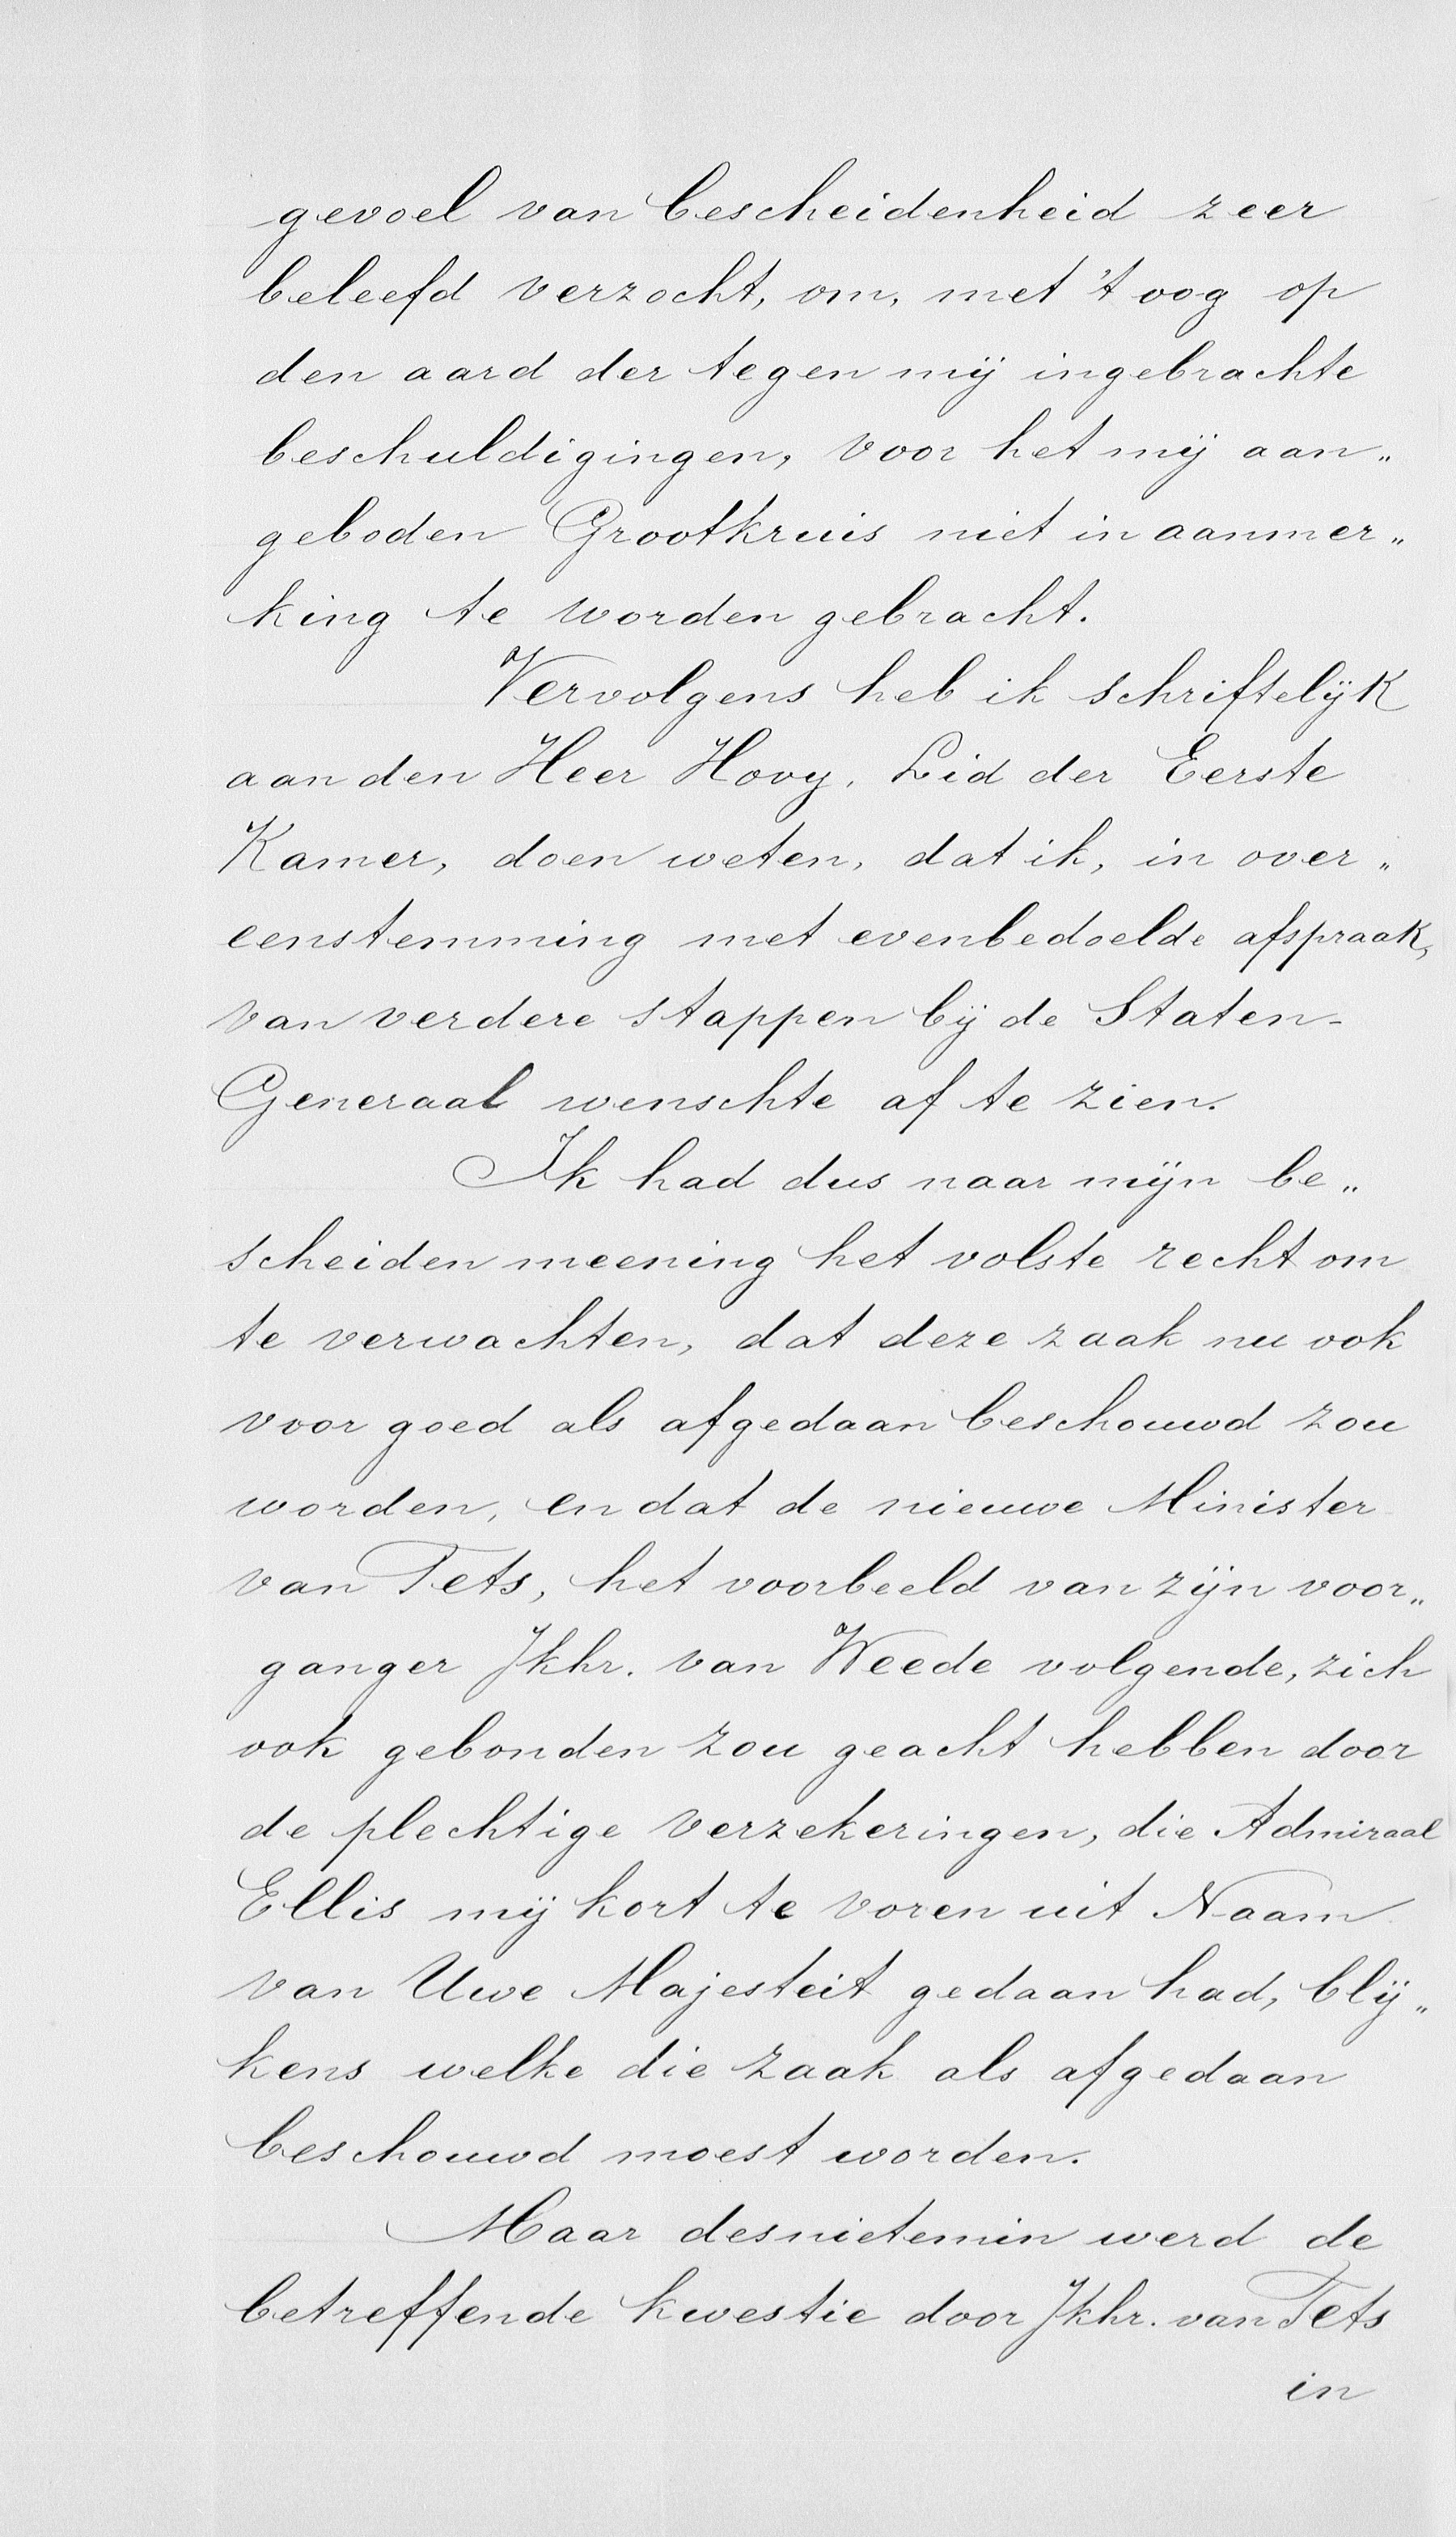 gevoel van bescheidenheid zeer
beleefd verzocht, om, met 't oog op
den aard der tegen mij ingebrachte
beschuldigingen, voor het mij aan„
geboden Grootkruis niet in aanmer„
king te worden gebracht.
Vervolgens heb ik schriftelijk
aan den Heer Hovy, Lid der Eerste
Kamer, doen weten, dat ik, in over„
eenstemming met evenbedoelde afspraak,
van verdere stappen bij de Staten-
Generaal wenschte af te zien.
Ik had dus naar mijn be„
scheiden meening het volste recht om
te verwachten, dat deze zaak nu ook
voor goed als afgedaan beschouwd zou
worden, en dat de nieuwe Minister
van Tets, het voorbeeld van zijn voor„
ganger Jkhr. van Weede volgende, zich
ook gebonden zou geacht hebben door
de plechtige verzekeringen, die Admiraal
Ellis mij kort te voren uit Naam
van Uwe Majesteit gedaan had, blij„
kens welke die zaak als afgedaan
beschouwd moest worden.
Maar desnietemin werd de
betreffende kwestie door Jkhr. van Tets
in